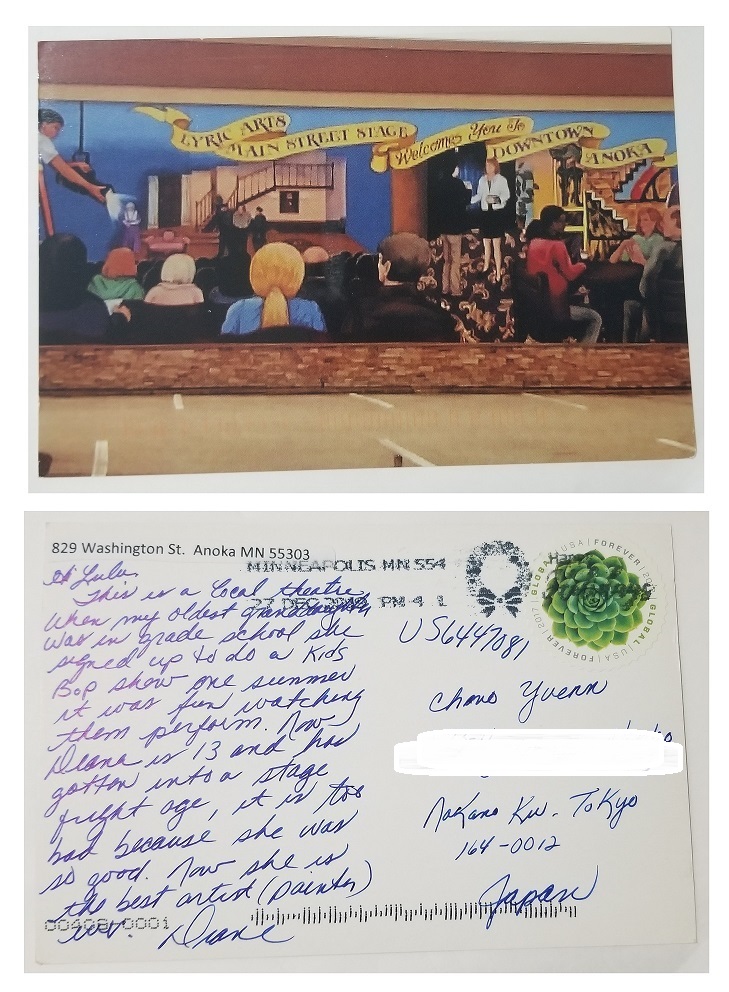 LYRIC ARTS
MAIN STREET STAGE
Welcomes You To
DOWNTOWN
ANOKA
829 Washington St. Anoka MN 55303
MINNEAPOLIS MN 554
27 DEC PM 4 L
GLOBAL USA FOREVER
GLOBAL USA FOREVER 2017
Hi Lulu
This is a local theatre
When my oldest granddaughter
was in grade school she
signed up to do a Kids
Bop show one summer
it was fun watching
them perform. Now
Diana is 13 and has
gotten into a stage
fright age, it is too
bad because she was
so good. Now she is
the best artist (painter)
ever. Diane
US6447081
Chono Yuenn
Nakano Ku. Tokyo
164-0012
Japan
00408 0001